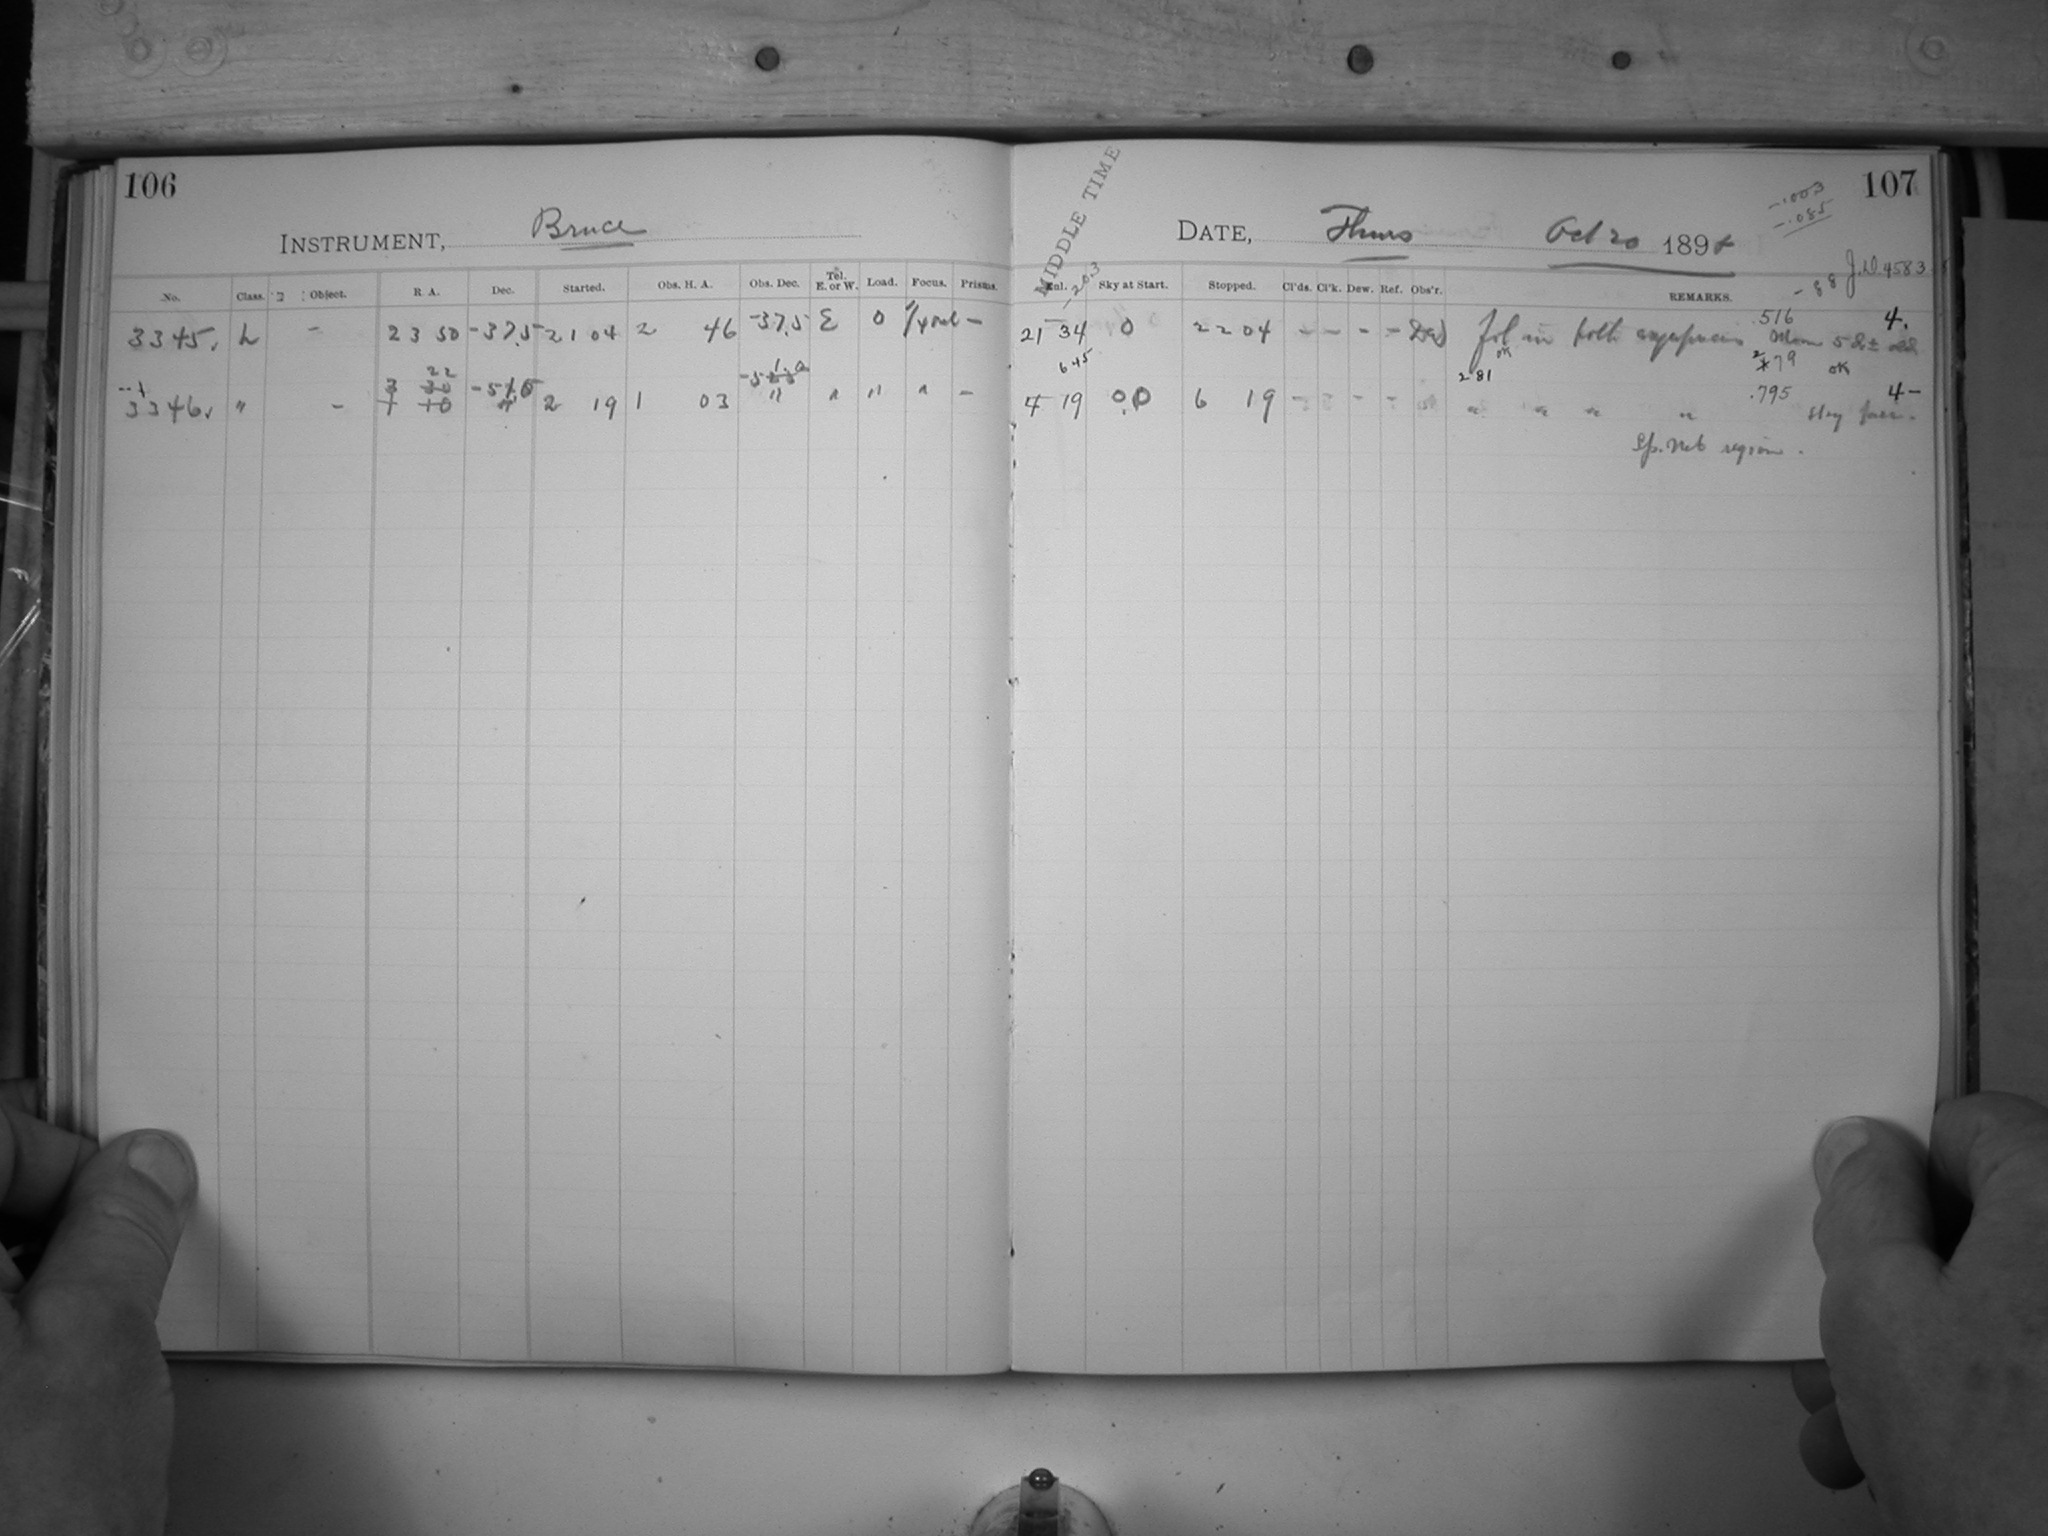 106
INSTRUMENT, Bruce
No. Class. Object. R. A. Dec. Started. Obs. H. A. Obs. Dec. Tel. E. or W. Load. Focus. Prisms.
3345. L - 23 50 -37.5 21 04 2 46 -37.5 E 0 -
22
3 30 -51.0
3346. " - 1 10 " 2 19 1 03 " " " " -
107
MIDDLE TIME
-.003
-.085
-88
DATE, Thurs Oct 20 1898
J.D. 4583
-203
Sky at Start. Stopped. Cl'ds. Cl'k. Dew. Ref. Obs'r. REMARKS.
.516 4.
21 34 0 22 04 - - - - in both exposures Moon 5 d ± old
645 ok 279 ok
281
.795 4-
4 19 0.0 6 19 - - - - " " " " sky
Sp. Neb region.